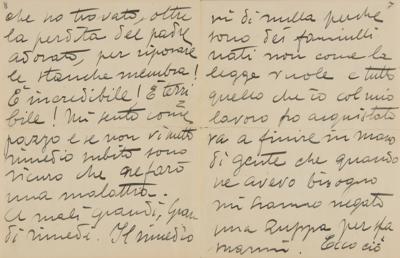 che ho trovato, oltre
la perdita del padre
adorato, per riposare
le stanche membra!
È incredibile! È terri
bile! Mi sento come
pazzo e se non vi metto
rimedio subito sono
sicuro che farò
una malattia.
A mali grandi, gran
di rimedi. Il rimedio
vi di nulla perche
sono dei fanciulli
nati non come la
legge vuole e tutto
quello che io col mio
lavoro ho acquistato
va a finire in mano
di gente che quando
ne avevo bisogno
mi hanno negato
una zuppa per
mammi. Ecco ciò